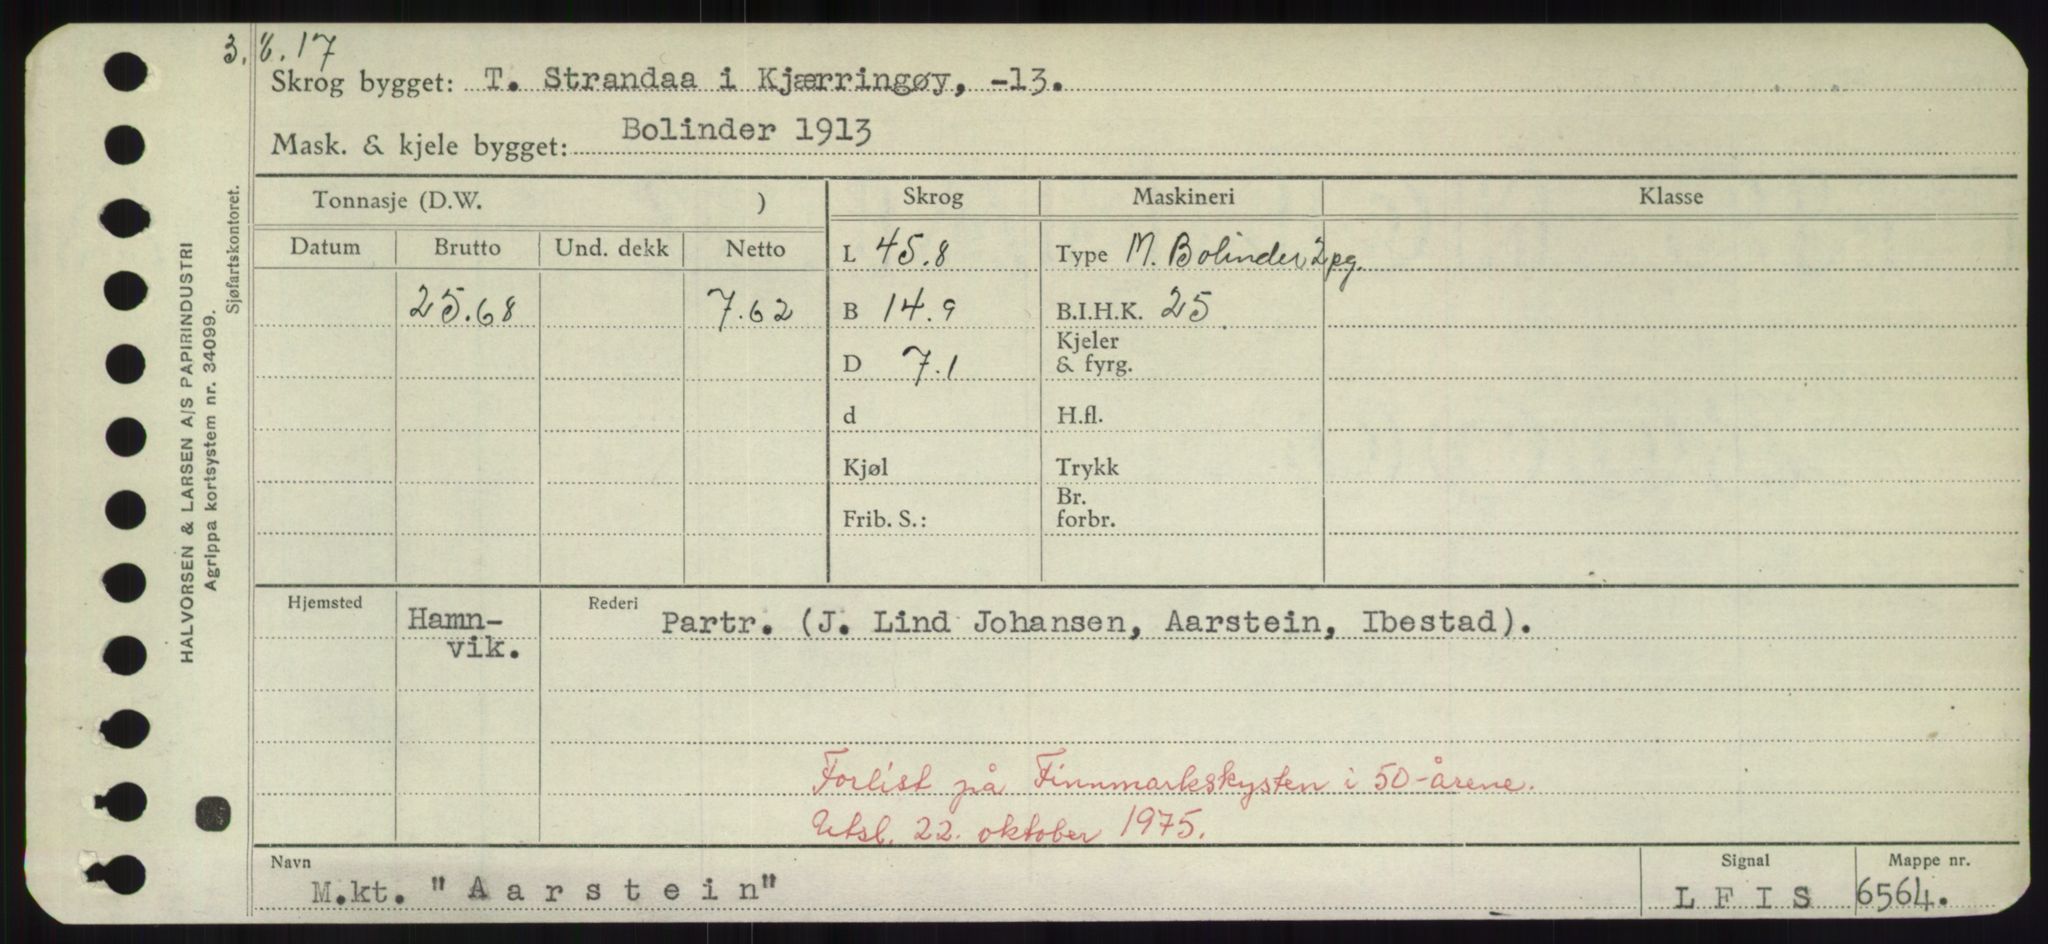 3. 8. 17
Skrog bygget: T. Strandaa i Kjærringøy, -13.
Mask. & kjele bygget: Bolinder 1913
Tonnasje (D.W. )
Skrog
Maskineri
Klasse
Datum
Brutto
Und. dekk
Netto
25.68
7.62
L 45.8
B 14.9
D 7.1
d
Kjøl
Frib. S.:
Type M. Bolinder 2 pg.
B.I.H.K. 25
Kjeler
& fyrg.
H.fl.
Trykk
Br.
forbr.
Hjemsted
Hamn-
vik.
Rederi
Partr. (J. Lind Johansen, Aarstein, Ibestad).
Forlist på Finnmarkskysten i 50-årene.
Utsl. 22. oktober 1975.
Navn
M.kt. "Aarstein"
Signal
LFIS
Mappe nr.
6564.
HALVORSEN & LARSEN A/S PAPIRINDUSTRI
Agrippa kortsystem nr. 34099.
Sjøfartskontoret.